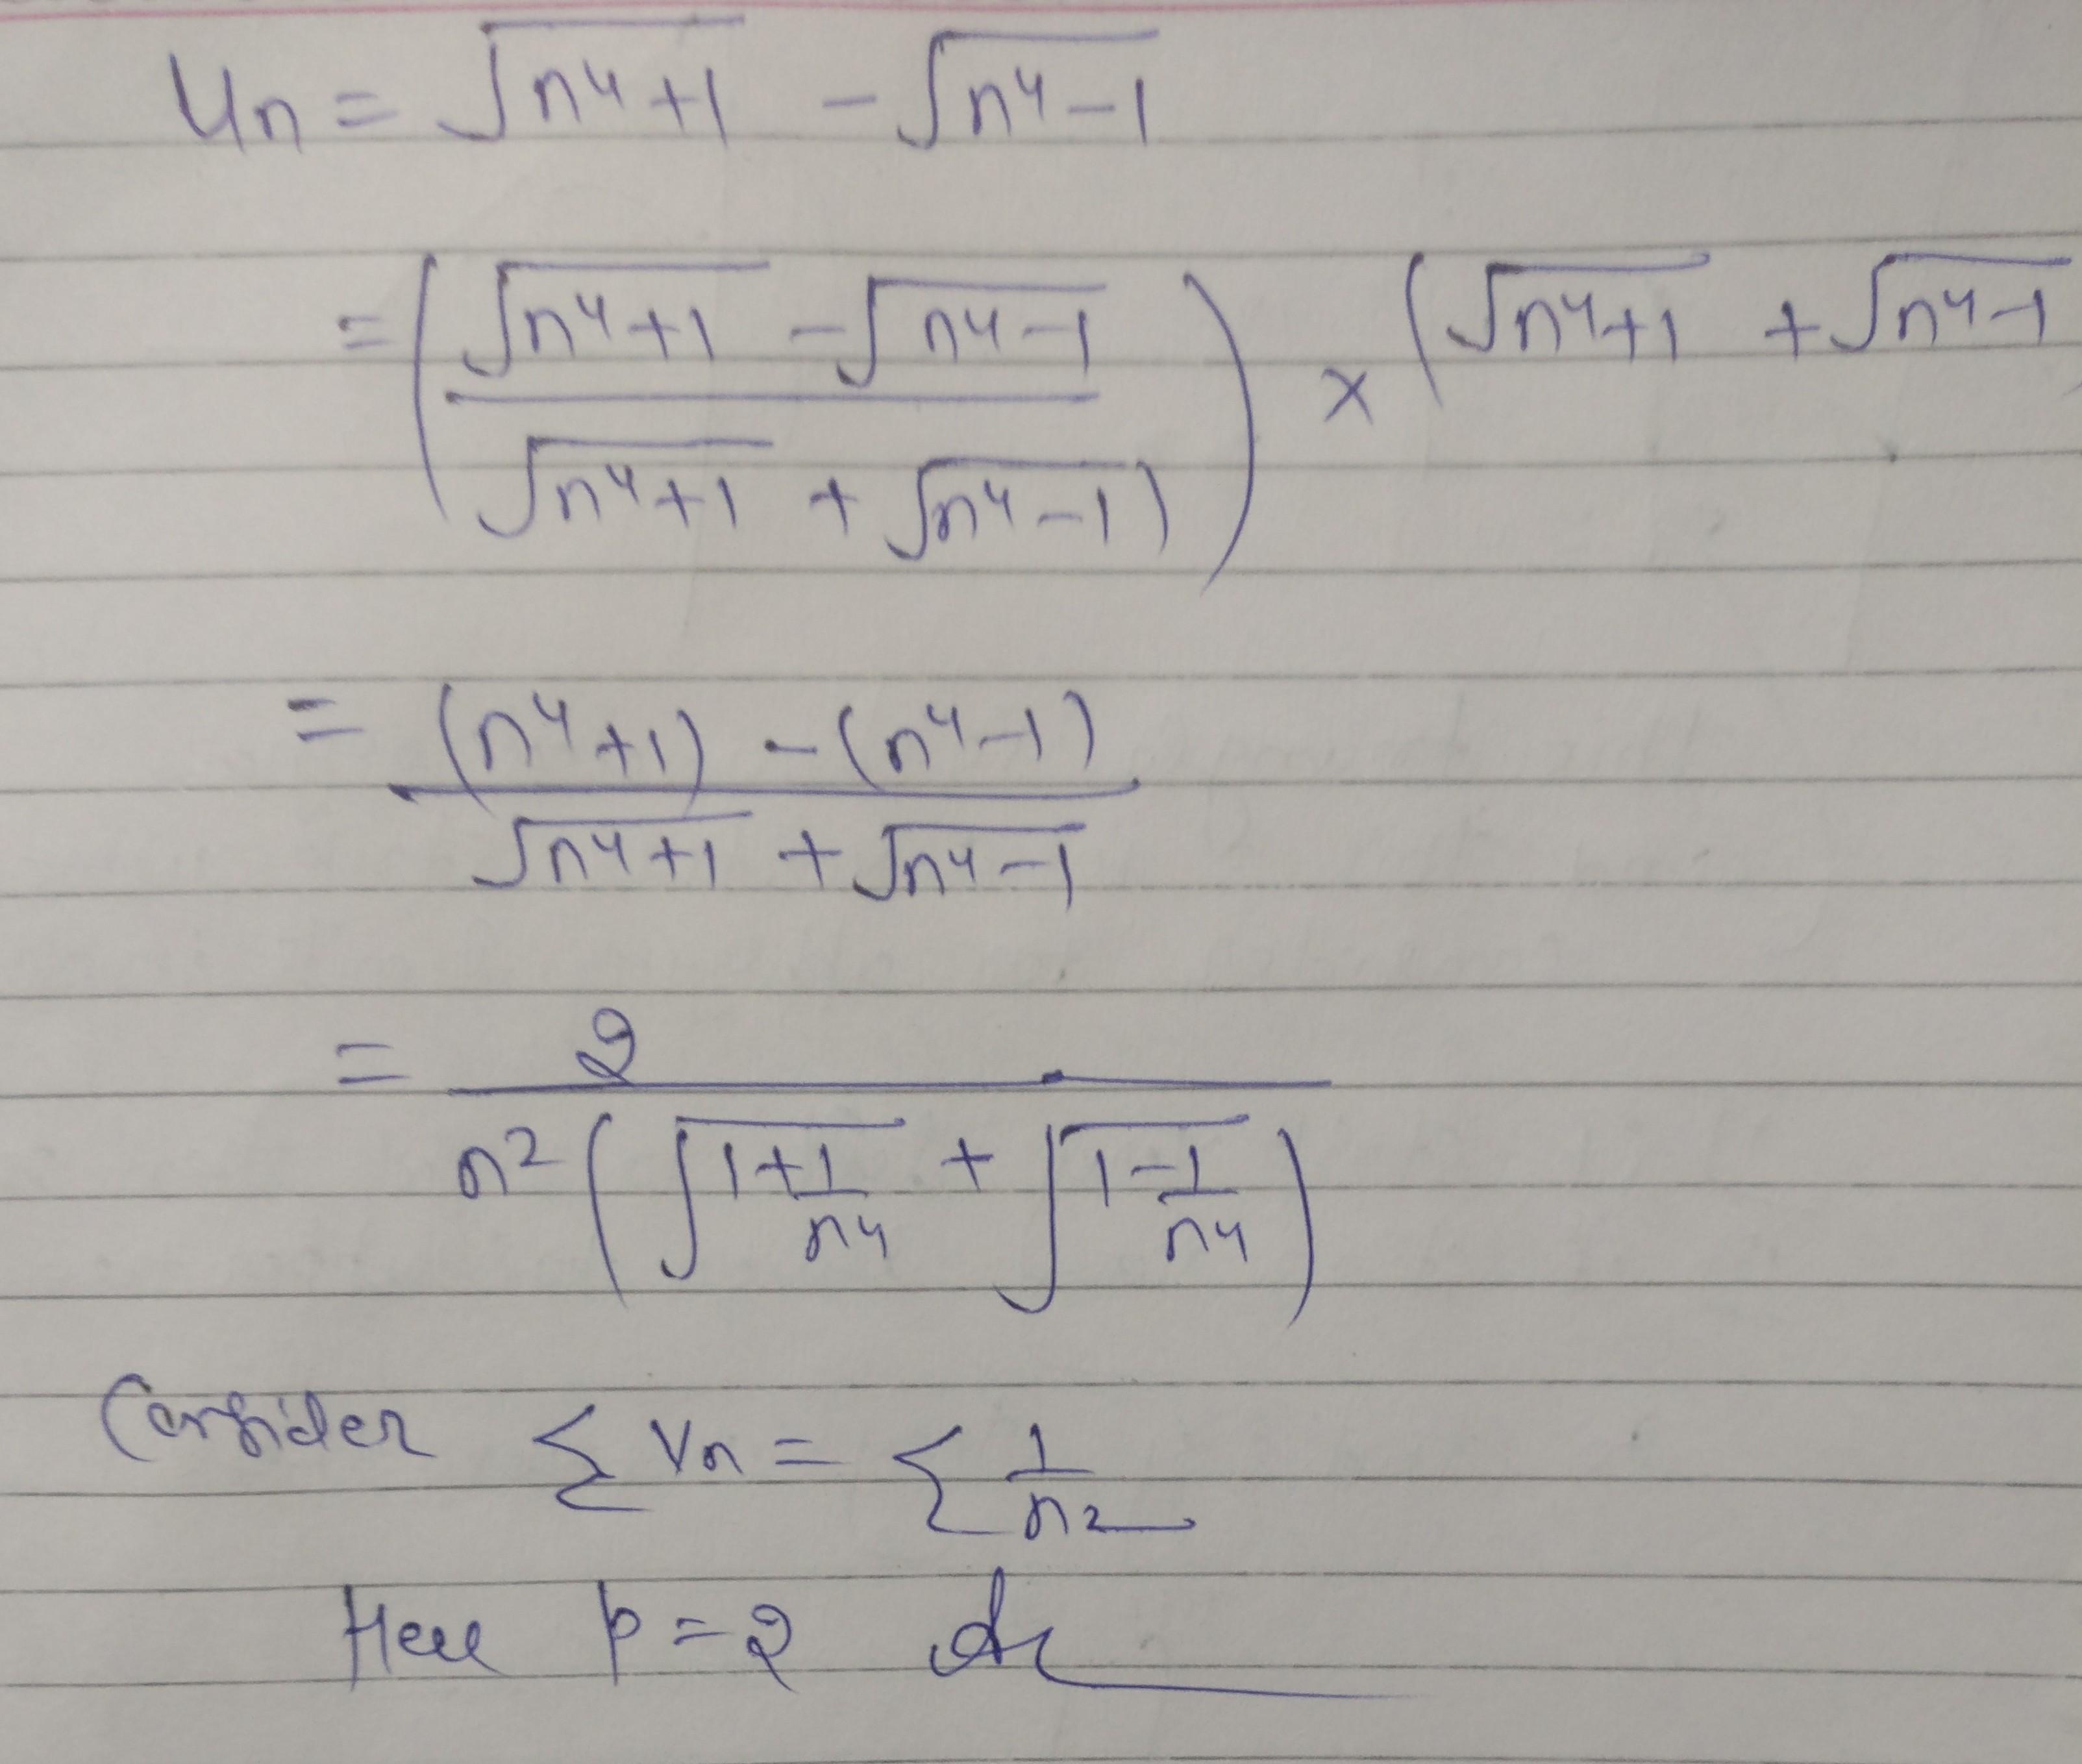 Un = √(n⁴+1) - √(n⁴-1)
= ((√(n⁴+1) - √(n⁴-1)) / (√(n⁴+1) + √(n⁴-1))) × (√(n⁴+1) + √(n⁴-1)
= ((n⁴+1) - (n⁴-1)) / (√(n⁴+1) + √(n⁴-1))
= 2 / (n²(√(1+1/n⁴) + √(1-1/n⁴)))
Consider Σ Vn = Σ 1/n²
Here p=2